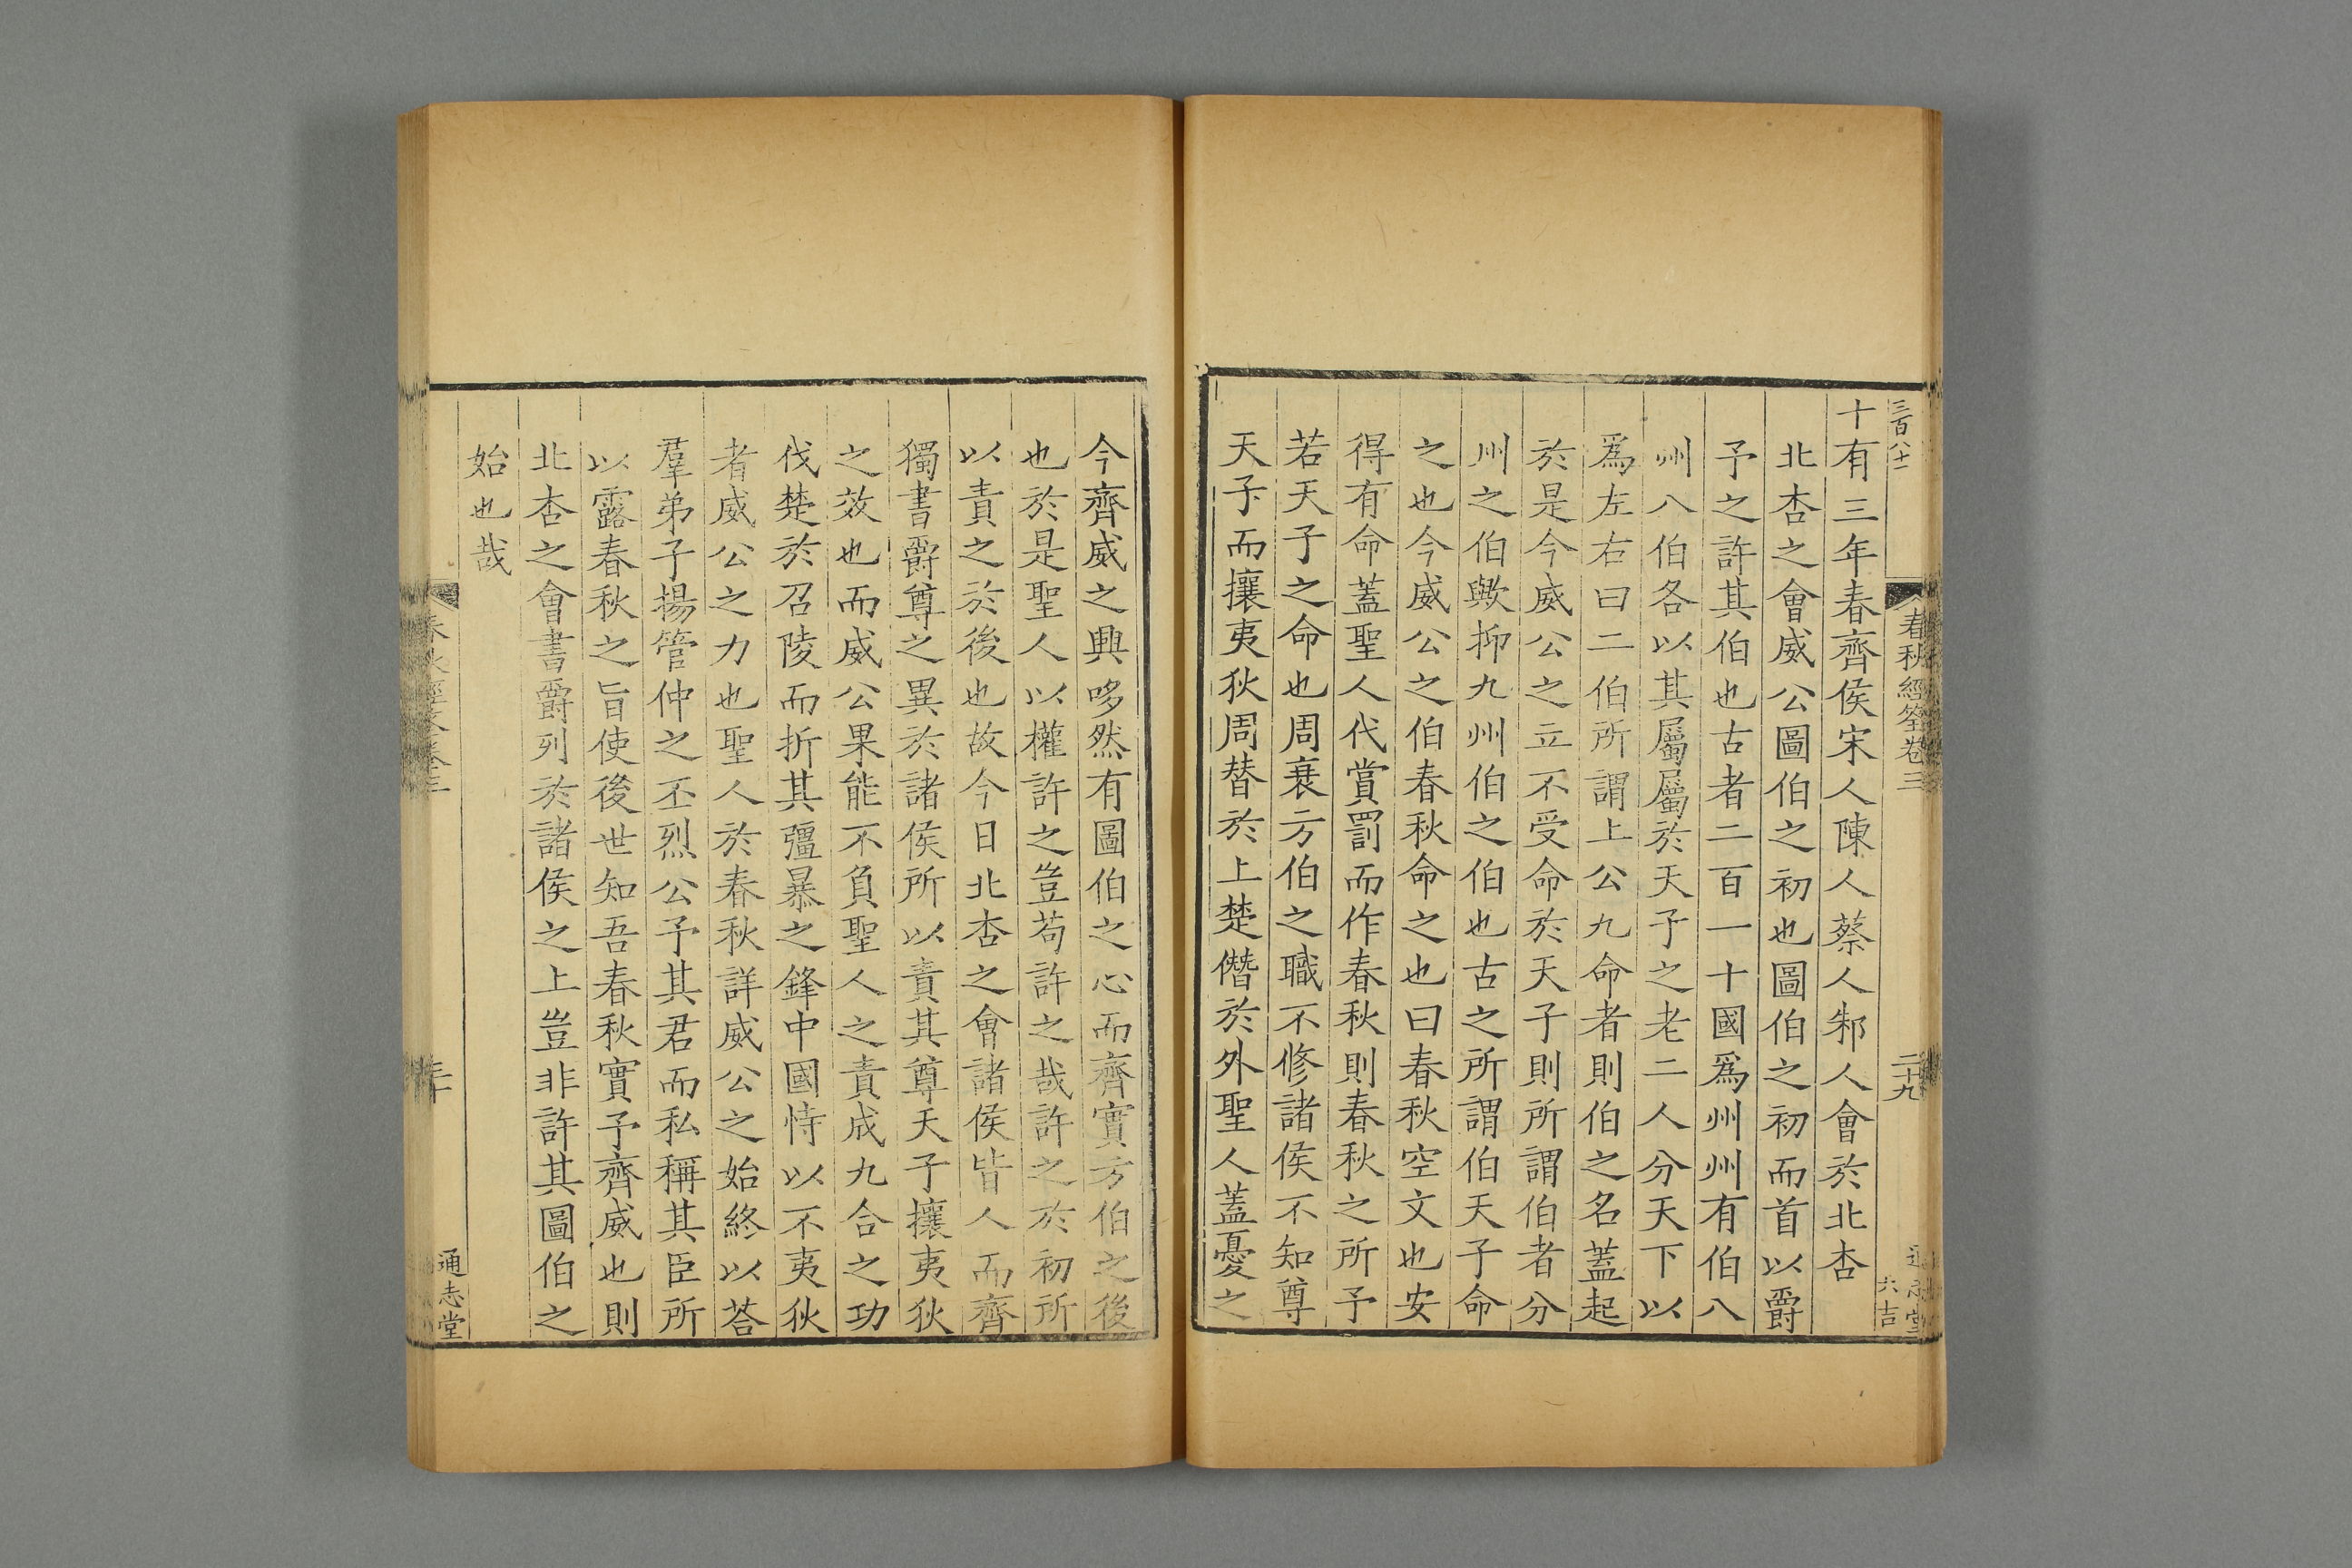 三百八十一
春秋經筌卷三
二十九
通志堂
六吉
十有三年春齊侯宋人陳人蔡人邾人會於北杏
北杏之會威公圖伯之初也圖伯之初而首以爵
予之許其伯也古者二百一十國爲州州有伯八
州八伯各以其屬屬於天子之老二人分天下以
爲左右曰二伯所謂上公九命者則伯之名蓋起
於是今威公之立不受命於天子則所謂伯者分
州之伯歟抑九州伯之伯也古之所謂伯天子命
之也今威公之伯春秋命之也曰春秋空文也安
得有命蓋聖人代賞罰而作春秋則春秋之所予
若天子之命也周衰方伯之職不修諸侯不知尊
天子而攘夷狄周替於上楚僭於外聖人蓋憂之
今齊威之興哆然有圖伯之心而齊實方伯之後
也於是聖人以權許之豈苟許之哉許之於初所
以責之於後也故今日北杏之會諸侯皆人而齊
獨書爵尊之異於諸侯所以責其尊天子攘夷狄
之效也而威公果能不負聖人之責成九合之功
伐楚於召陵而折其彊暴之鋒中國恃以不夷狄
者威公之力也聖人於春秋詳威公之始終以荅
羣弟子揚管仲之丕烈公予其君而私稱其臣所
以露春秋之旨使後世知吾春秋實予齊威也則
北杏之會書爵列於諸侯之上豈非許其圖伯之
始也哉
通志堂